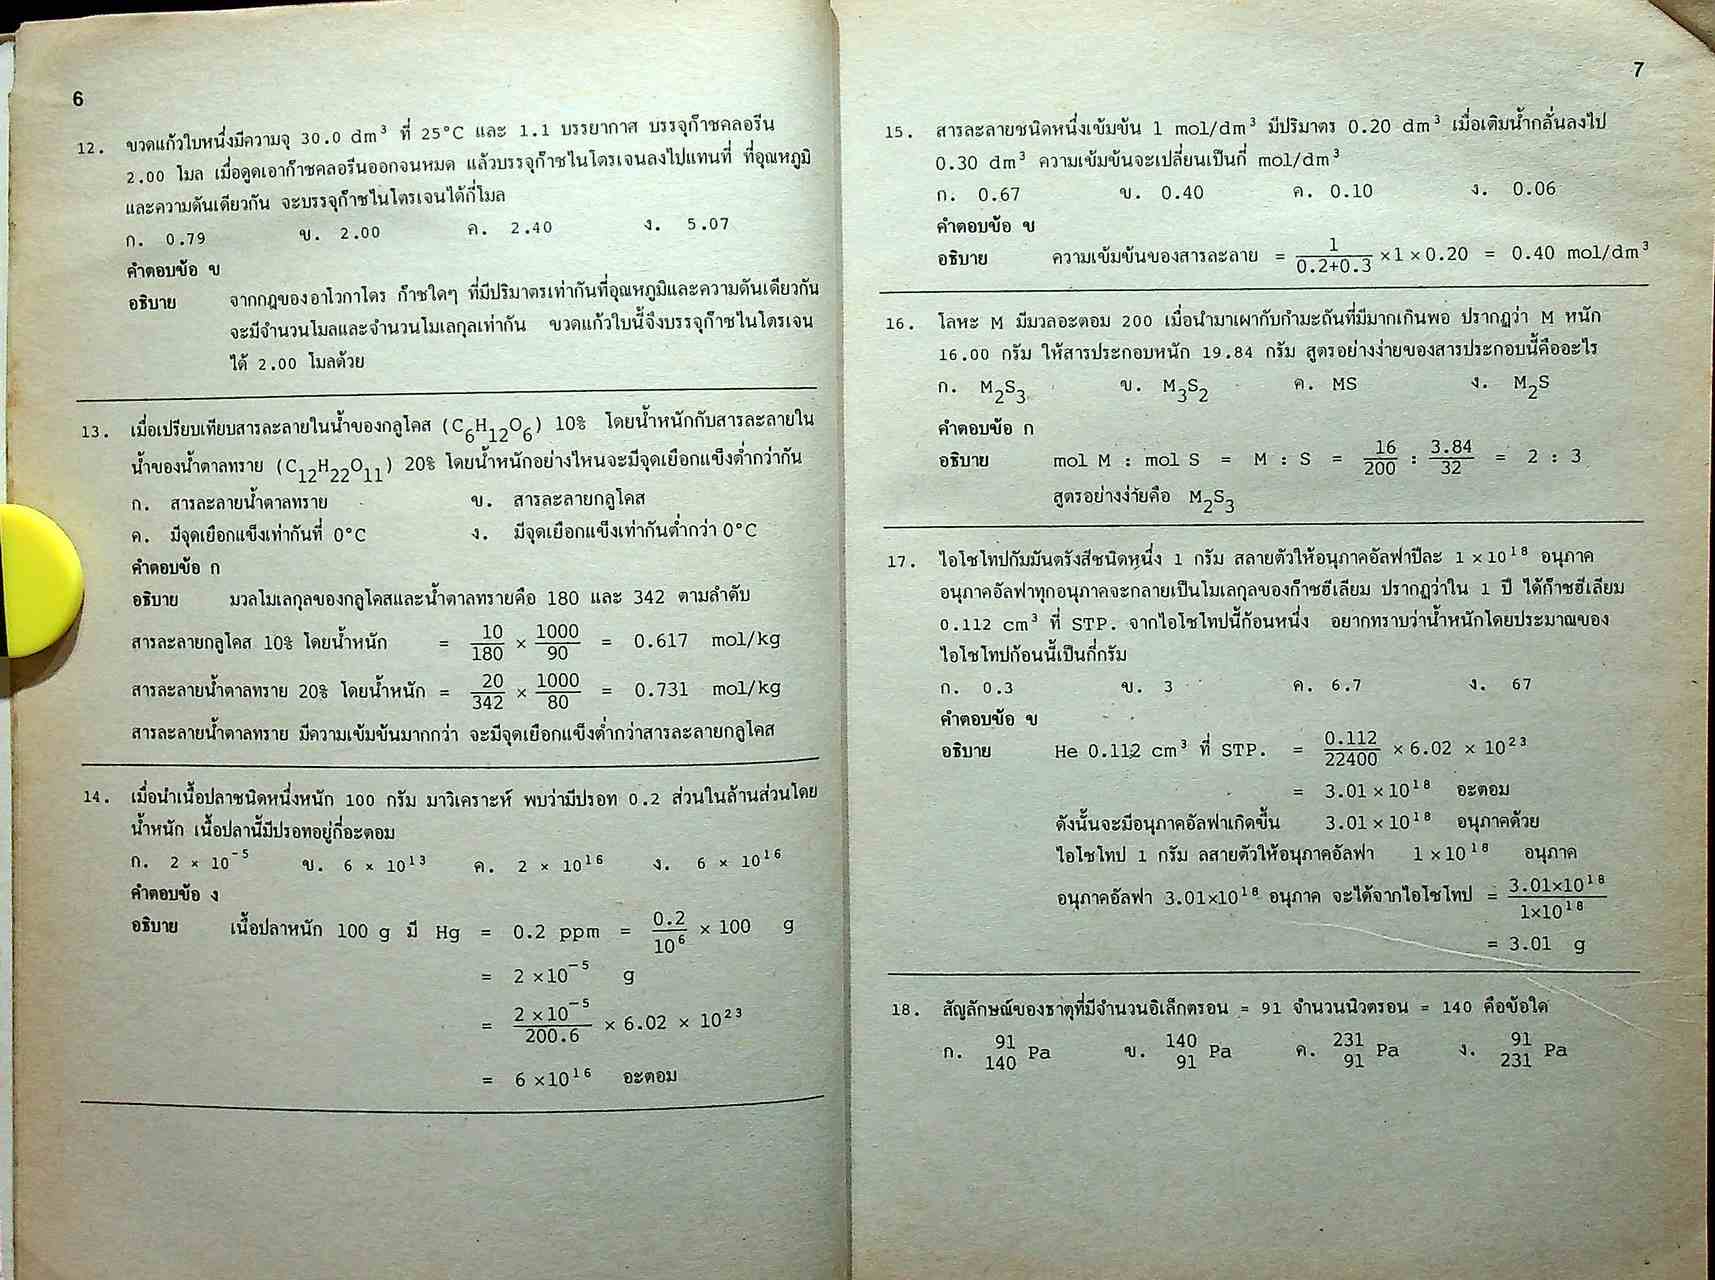 6
12. ขวดแก้วใบหนึ่งมีความจุ 30.0 dm³ ที่ 25°C และ 1.1 บรรยากาศ บรรจุก๊าซคลอรีน
2.00 โมล เมื่อดูดเอาก๊าซคลอรีนออกจนหมด แล้วบรรจุก๊าซไนโตรเจนลงไปแทนที่ ที่อุณหภูมิ
และความดันเดียวกัน จะบรรจุก๊าซไนโตรเจนได้กี่โมล
ก. 0.79 ข. 2.00 ค. 2.40 ง. 5.07
คำตอบข้อ ข
อธิบาย จากกฎของอาโวกาโดร ก๊าซใดๆ ที่มีปริมาตรเท่ากันที่อุณหภูมิและความดันเดียวกัน
จะมีจำนวนโมลและจำนวนโมเลกุลเท่ากัน ขวดแก้วใบนี้จึงบรรจุก๊าซไนโตรเจน
ได้ 2.00 โมลด้วย
13. เมื่อเปรียบเทียบสารละลายในน้ำของกลูโคส (C₆H₁₂O₆) 10% โดยน้ำหนักกับสารละลายใน
น้ำของน้ำตาลทราย (C₁₂H₂₂O₁₁) 20% โดยน้ำหนักอย่างไหนจะมีจุดเยือกแข็งต่ำกว่ากัน
ก. สารละลายน้ำตาลทราย ข. สารละลายกลูโคส
ค. มีจุดเยือกแข็งเท่ากันที่ 0°C ง. มีจุดเยือกแข็งเท่ากันต่ำกว่า 0°C
คำตอบข้อ ก
อธิบาย มวลโมเลกุลของกลูโคสและน้ำตาลทรายคือ 180 และ 342 ตามลำดับ
สารละลายกลูโคส 10% โดยน้ำหนัก = 10/180 × 1000/90 = 0.617 mol/kg
สารละลายน้ำตาลทราย 20% โดยน้ำหนัก = 20/342 × 1000/80 = 0.731 mol/kg
สารละลายน้ำตาลทราย มีความเข้มข้นมากกว่า จะมีจุดเยือกแข็งต่ำกว่าสารละลายกลูโคส
14. เมื่อนำเนื้อปลาชนิดหนึ่งหนัก 100 กรัม มาวิเคราะห์ พบว่ามีปรอท 0.2 ส่วนในล้านส่วนโดย
น้ำหนัก เนื้อปลานี้มีปรอทอยู่กี่อะตอม
ก. 2 × 10⁻⁵ ข. 6 × 10¹³ ค. 2 × 10¹⁶ ง. 6 × 10¹⁶
คำตอบข้อ ง
อธิบาย เนื้อปลาหนัก 100 g มี Hg = 0.2 ppm = 0.2/10⁶ × 100 g
= 2 ×10⁻⁵ g
= 2 ×10⁻⁵/200.6 × 6.02 × 10²³
= 6 ×10¹⁶ อะตอม
7
15. สารละลายชนิดหนึ่งเข้มข้น 1 mol/dm³ มีปริมาตร 0.20 dm³ เมื่อเติมน้ำกลั่นลงไป
0.30 dm³ ความเข้มข้นจะเปลี่ยนเป็นกี่ mol/dm³
ก. 0.67 ข. 0.40 ค. 0.10 ง. 0.06
คำตอบข้อ ข
อธิบาย ความเข้มข้นของสารละลาย = 1/0.2+0.3 ×1 ×0.20 = 0.40 mol/dm³
16. โลหะ M มีมวลอะตอม 200 เมื่อนำมาเผากับกำมะถันที่มีมากเกินพอ ปรากฏว่า M หนัก
16.00 กรัม ให้สารประกอบหนัก 19.84 กรัม สูตรอย่างง่ายของสารประกอบนี้คืออะไร
ก. M₂S₃ ข. M₃S₂ ค. MS ง. M₂S
คำตอบข้อ ก
อธิบาย mol M : mol S = M : S = 16/200 : 3.84/32 = 2 : 3
สูตรอย่างง่ายคือ M₂S₃
17. ไอโซโทปกัมมันตรังสีชนิดหนึ่ง 1 กรัม สลายตัวให้อนุภาคอัลฟาปีละ 1 ×10¹⁸ อนุภาค
อนุภาคอัลฟาทุกอนุภาคจะกลายเป็นโมเลกุลของก๊าซฮีเลียม ปรากฏว่าใน 1 ปี ได้ก๊าซฮีเลียม
0.112 cm³ ที่ STP. จากไอโซโทปนี้ก้อนหนึ่ง อยากทราบว่าน้ำหนักโดยประมาณของ
ไอโซโทปก้อนนี้เป็นกี่กรัม
ก. 0.3 ข. 3 ค. 6.7 ง. 67
คำตอบข้อ ข
อธิบาย He 0.112 cm³ ที่ STP. = 0.112/22400 ×6.02 × 10²³
= 3.01 ×10¹⁸ อะตอม
ดังนั้นจะมีอนุภาคอัลฟาเกิดขึ้น 3.01 ×10¹⁸ อนุภาคด้วย
ไอโซโทป 1 กรัม ลสายตัวให้อนุภาคอัลฟา 1 ×10¹⁸ อนุภาค
อนุภาคอัลฟา 3.01×10¹⁸ อนุภาค จะได้จากไอโซโทป = 3.01×10¹⁸/1×10¹⁸
= 3.01 g
18. สัญลักษณ์ของธาตุที่มีจำนวนอิเล็กตรอน = 91 จำนวนนิวตรอน = 140 คือข้อใด
ก. 91/140 Pa ข. 140/91 Pa ค. 231/91 Pa ง. 91/231 Pa